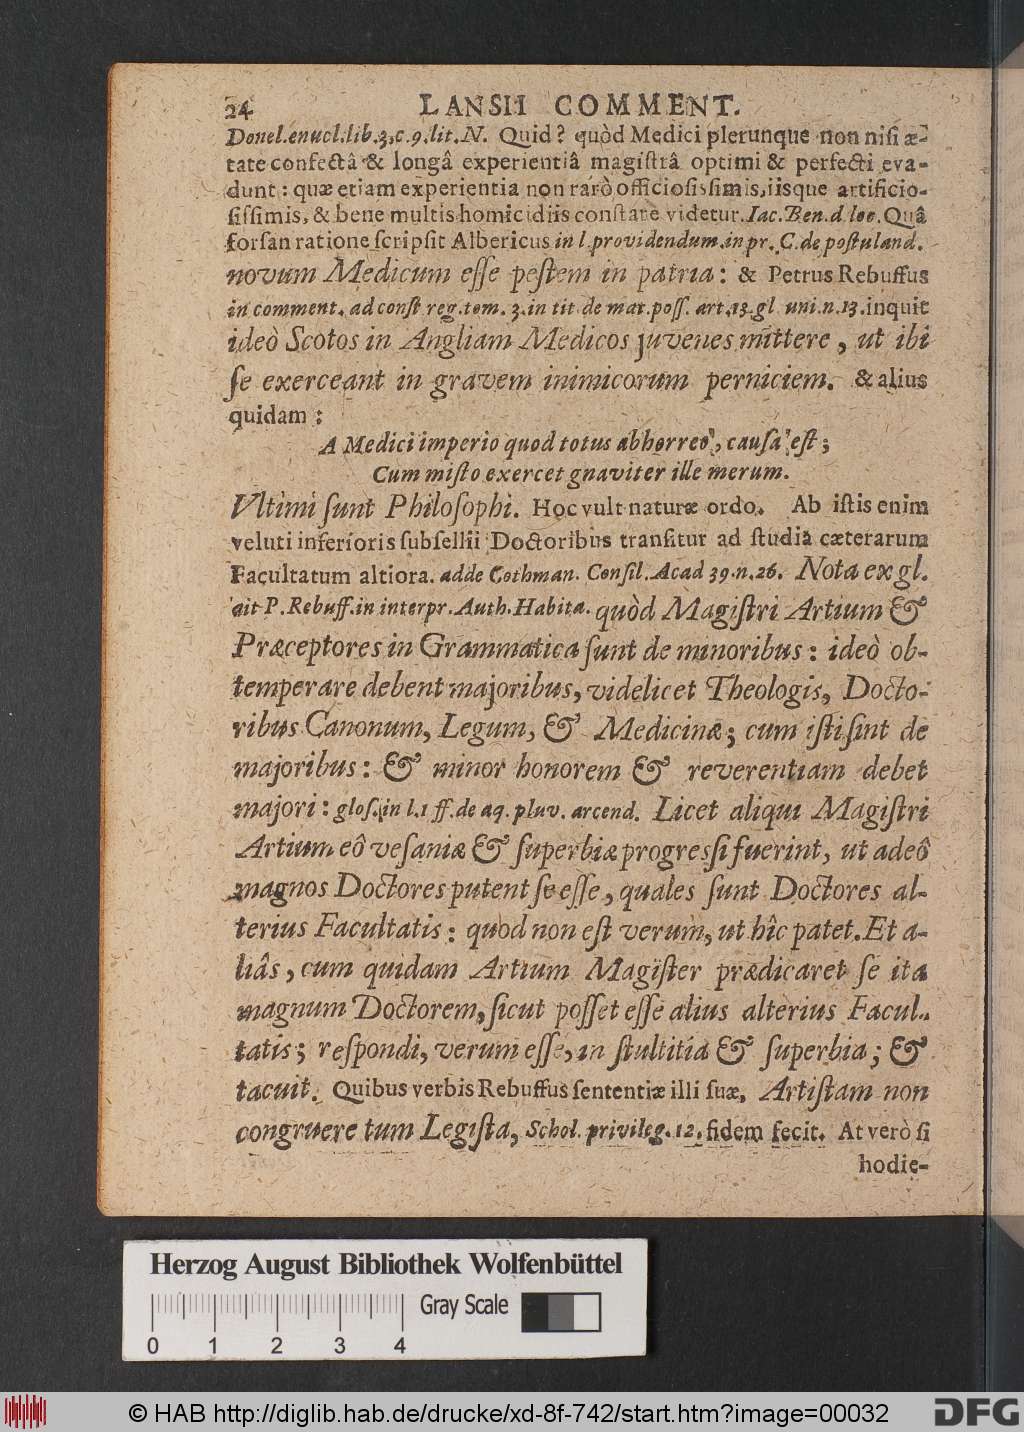 24 LANSII COMMENT.
Donel.enucl.lib.3.c.9.lit.N. Quid? quòd Medici plerunque non niſi æ-
tate confectâ & longâ experientiâ magiſtrâ optimi & perfecti eva-
dunt: quæ etiam experientia non rarò officioſiſſimis, iisque artificio-
ſiſſimis, & bene multis homicidiis conſtare videtur. Iac.Ben.d loc. Quâ
forſan ratione ſcripſit Albericus in l.providendum.in pr. C.de poſtuland.
novum Medicum eſſe peſtem in patria: & Petrus Rebuffus
in comment. ad conſt reg.tom. 3.in tit de mat.poſſ. art.13.gl uni.n.13.inquit
ideò Scotos in Angliam Medicos juvenes mittere, ut ibi
ſe exerceant in gravem inimicorum perniciem. & alius
quidam:
A Medici imperio quod totus abhorreo, cauſa eſt;
Cum miſto exercet gnaviter ille merum.
Vltimi ſunt Philoſophi. Hoc vult naturæ ordo. Ab iſtis enim
veluti inferioris ſubſellii Doctoribus tranſitur ad ſtudia cæterarum
Facultatum altiora. adde Cothman. Conſil. Acad 39.n.26. Nota ex gl.
ait P. Rebuff.in interpr. Auth. Habita. quòd Magiſtri Artium &
Præceptores in Grammatica ſunt de minoribus: ideò ob-
temperare debent majoribus, videlicet Theologis, Docto-
ribus Canonum, Legum, & Medicinæ; cum iſti ſint de
majoribus: & minor honorem & reverentiam debet
majori: gloſ. in l.1 ff.de aq. pluv. arcend. Licet aliqui Magiſtri
Artium eô veſaniæ & ſuperbiæ progreſſi fuerint, ut adeô
magnos Doctores putent ſe eſſe, quales ſunt Doctores al-
terius Facultatis: quod non eſt verum, ut hîc patet. Et a-
liâs, cum quidam Artium Magiſter prædicaret ſe ita
magnum Doctorem, ſicut poſſet eſſe alius alterius Facul-
tatis; reſpondi, verum eſſe, in ſtultitia & ſuperbia; &
tacuit. Quibus verbis Rebuffus ſententiæ illi ſuæ, Artiſtam non
congruere tum Legiſta, Schol. privileg. 12. fidem fecit. At verò ſi
hodie-
Herzog August Bibliothek Wolfenbüttel
Gray Scale
0 1 2 3 4
© HAB http://diglib.hab.de/drucke/xd-8f-742/start.htm?image=00032
DFG